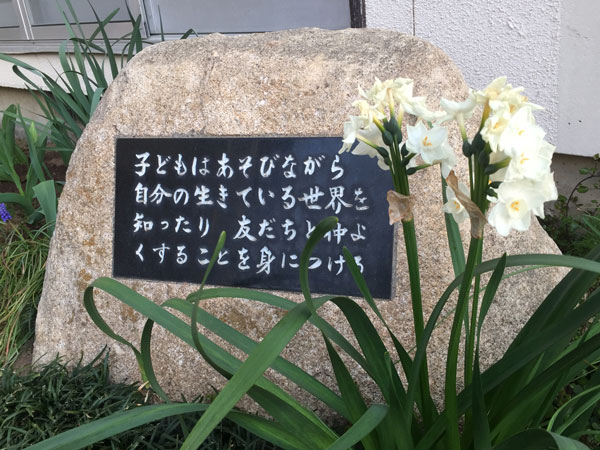 子どもはあそびながら
自分の生きている世界を
知ったり 友だちと仲よ
くすることを身につける